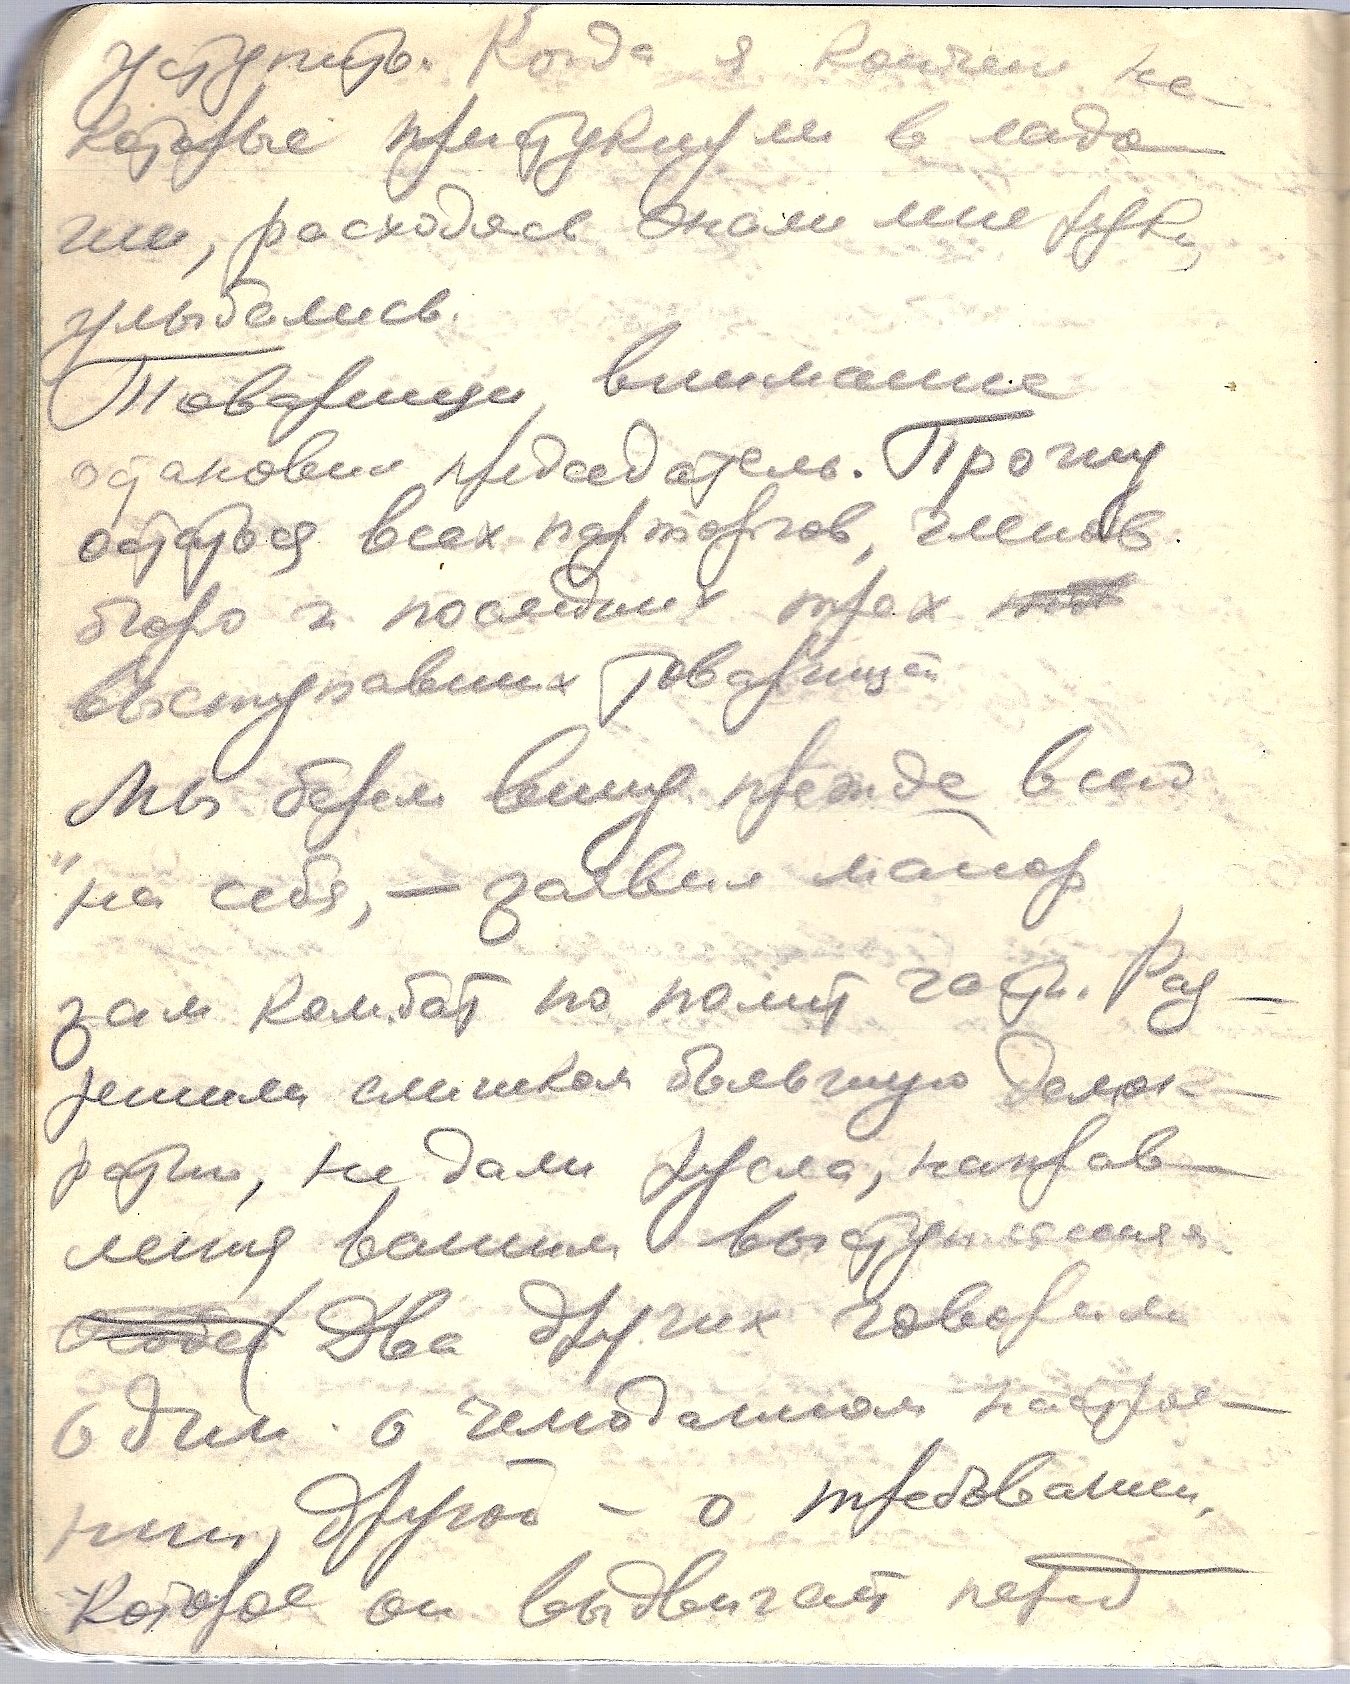 уступить. Когда я кончил не
которые пристукнули в ладо
ши, расходясь жали мне руки,
улыбались.
Товарищи, внимание
остановил председатель. Прошу
остаться всех парторгов, членов
бюро и последних трех
выступавших товарищей
Мы берем вину прежде всего
"на себя, — заявил майор
зам комбат по полит части. Раз—
решили слишком большую демок—
ратию, не дали русла, направ—
ления вашим выступлениям
Два других говорили
один о чемоданном настрое—
нии, другой – о требовании,
которое он выдвигает перед